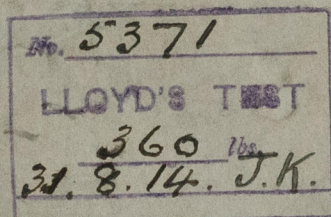 No. 5371
LLOYD'S TEST
360 lbs.
31. 8. 14. J.K.